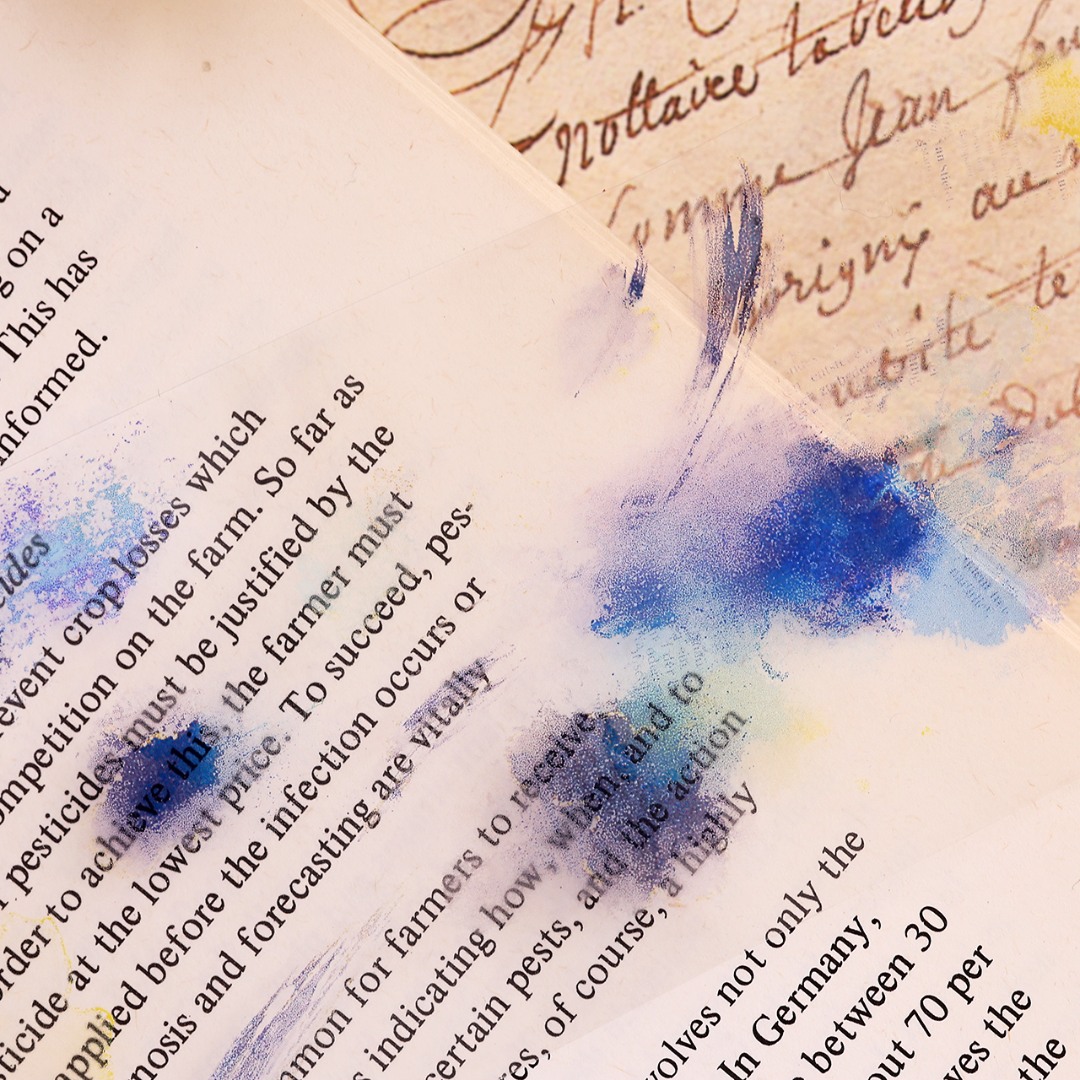 on a
This has
nformed.
cides
event crop losses which
ompetition on the farm. So far as
pesticides must be justified by the
rder to achieve this, the farmer must
ticide at the lowest price. To succeed, pes-
applied before the infection occurs or
nosis and forecasting are vitally
mmon for farmers to receive
s indicating how, when, and to
certain pests, and the action
res, of course, a highly
volves not only the
In Germany,
between 30
out 70 per
ves the
the
nottaire
Comme Jean
origny au